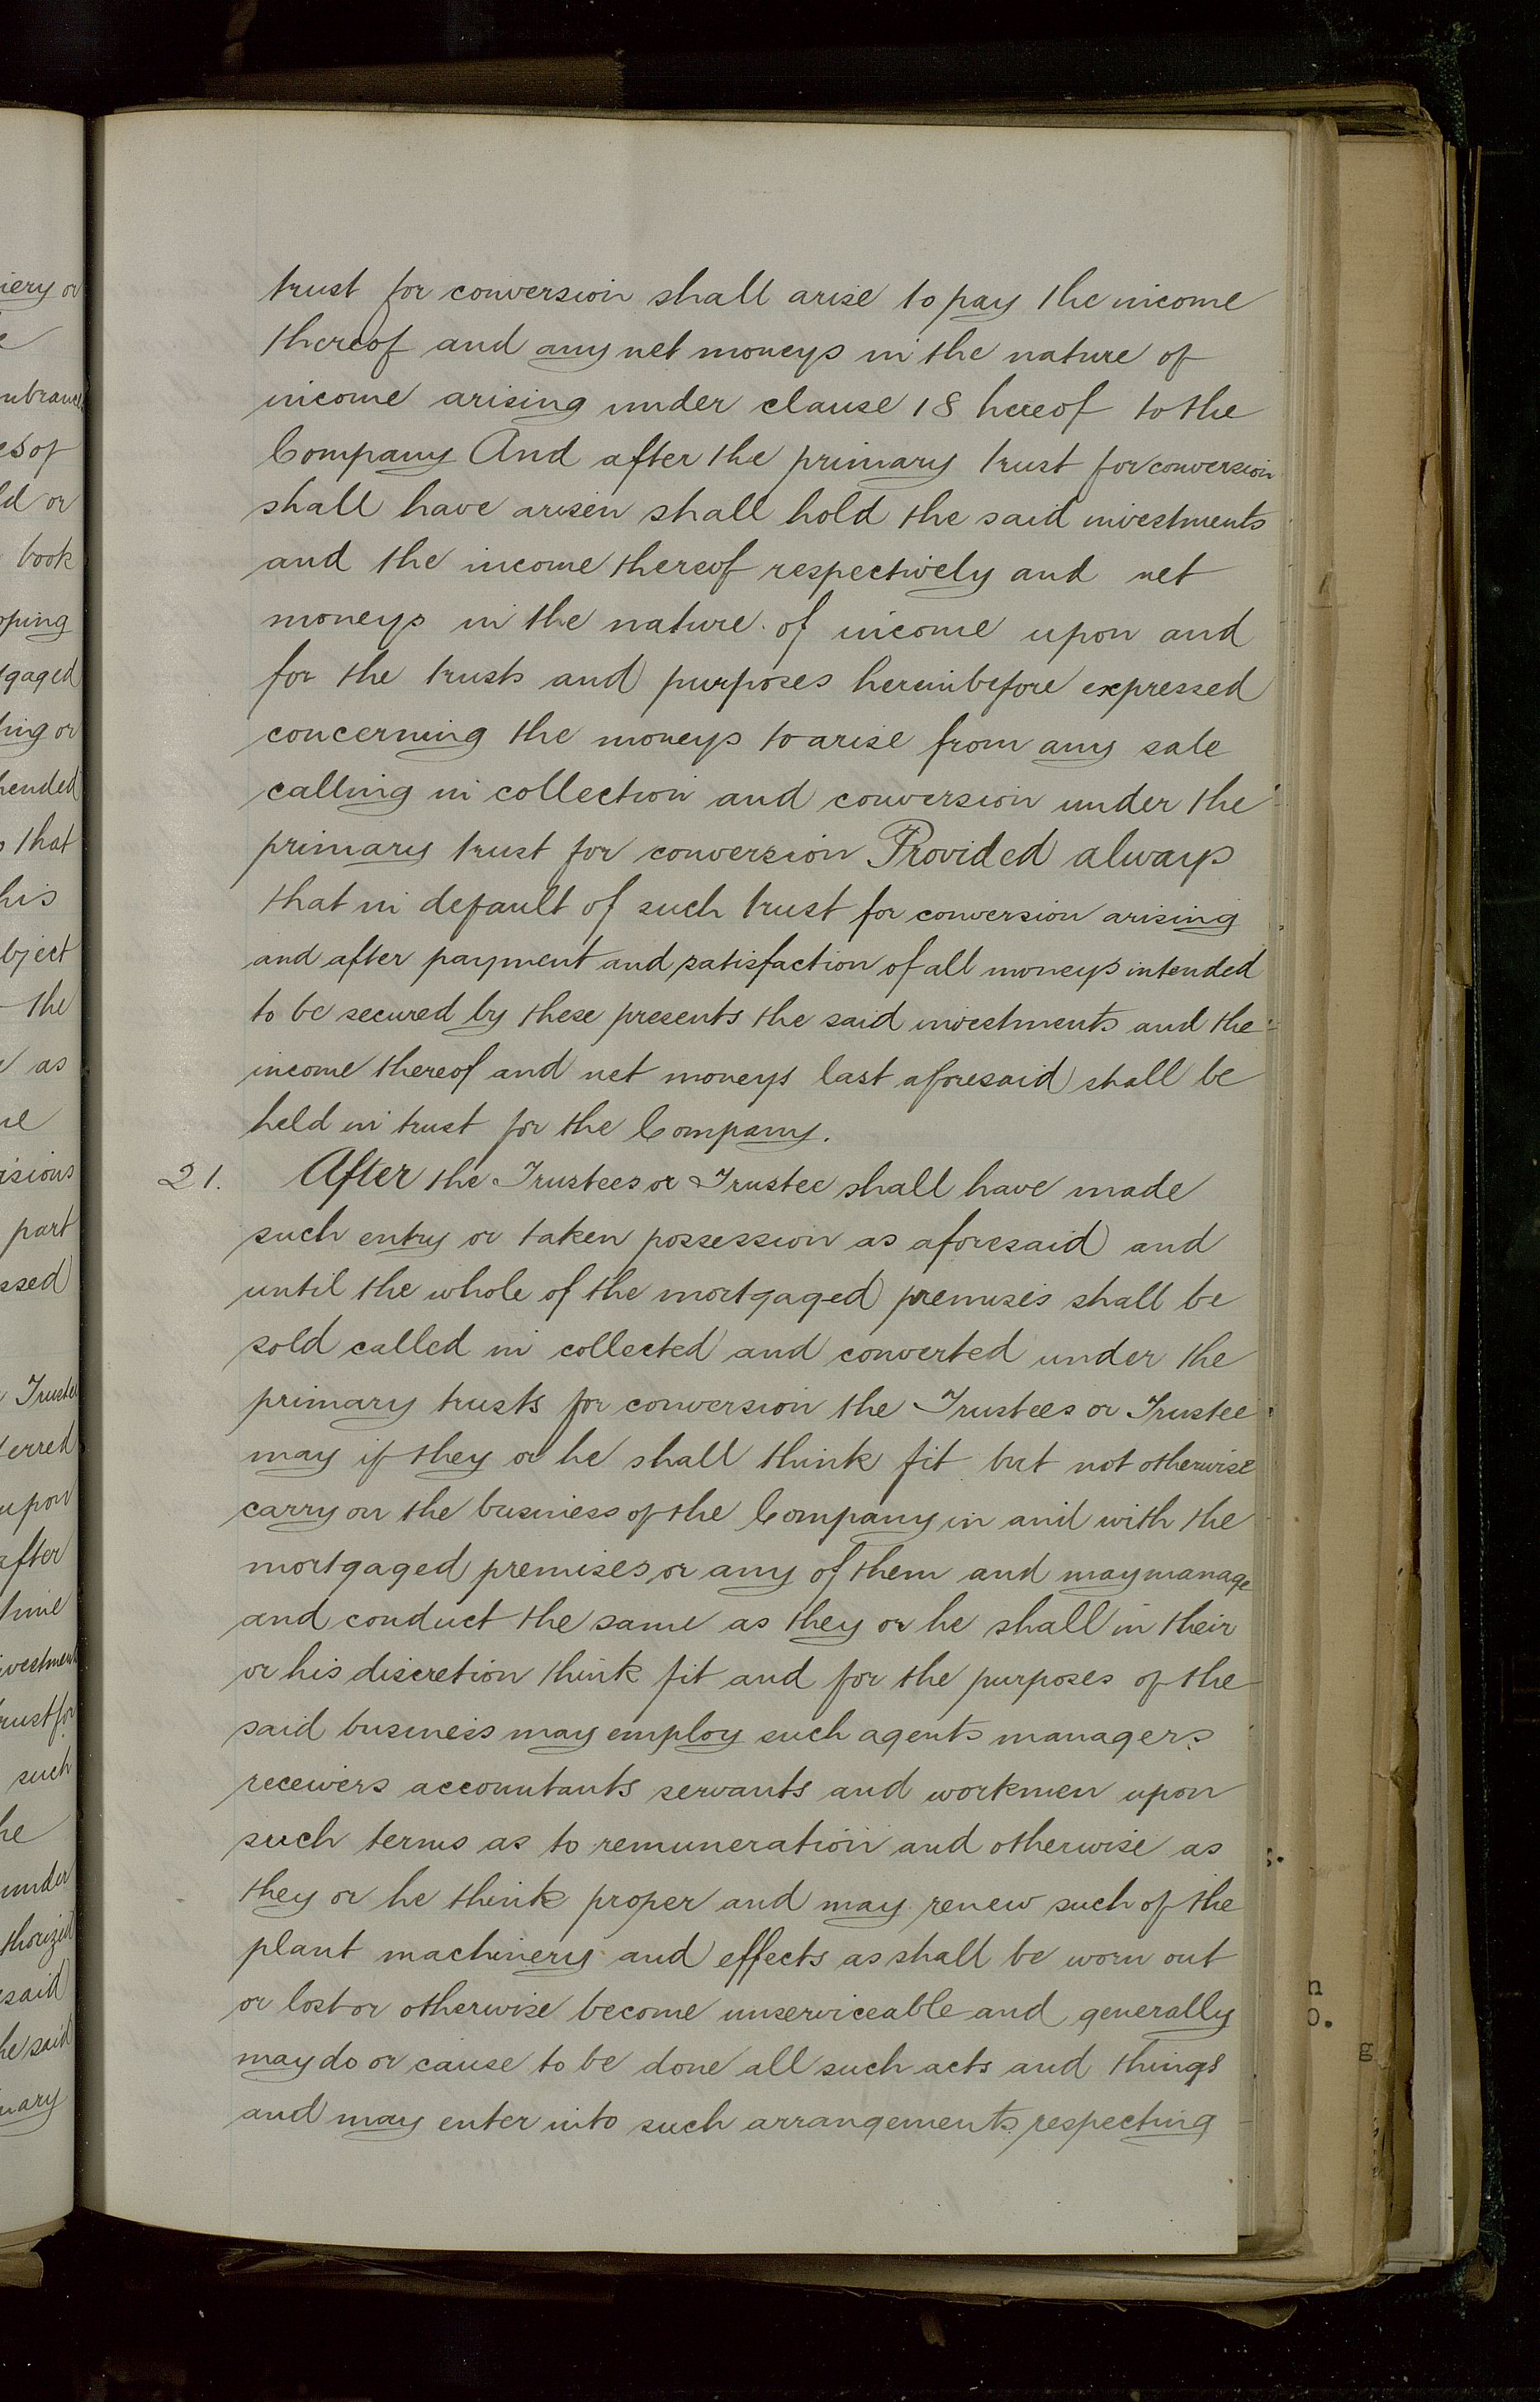 trust for conversion shall arise to pay the income
thereof and any net moneys in the nature of
income arising under clause 18 hereof to the
Company And after the primary trust for conversion
shall have arisen shall hold the said investments
and the income thereof respectively and net
moneys in the nature of income upon and
for the trusts and purposes hereinbefore expressed
concerning the moneys to arise from any sale
calling in collection and conversion under the
primary trust for conversion Provided always
that in default of such trust for conversion arising
and after payment and satisfaction of all moneys intended
to be secured by these presents the said investments and the
income thereof and net moneys last aforesaid shall be
held in trust for the Company.
21. After the Trustees or Trustee shall have made
such entry or taken possession as aforesaid and
until the whole of the mortgaged premises shall be
sold called in collected and converted under the
primary trusts for conversion the Trustees or Trustee
may if they or he shall think fit but not otherwise
carry on the business of the Company in and with the
mortgaged premises or any of them and may manage
and conduct the same as they or he shall in their
or his discretion think fit and for the purposes of the
said business may employ such agents managers
receivers accountants servants and workmen upon
such terms as to remuneration and otherwise as
they or he think proper and may renew such of the
plant machinery and effects as shall be worn out
or lost or otherwise become unserviceable and generally
may do or cause to be done all such acts and things
and may enter into such arrangements respecting